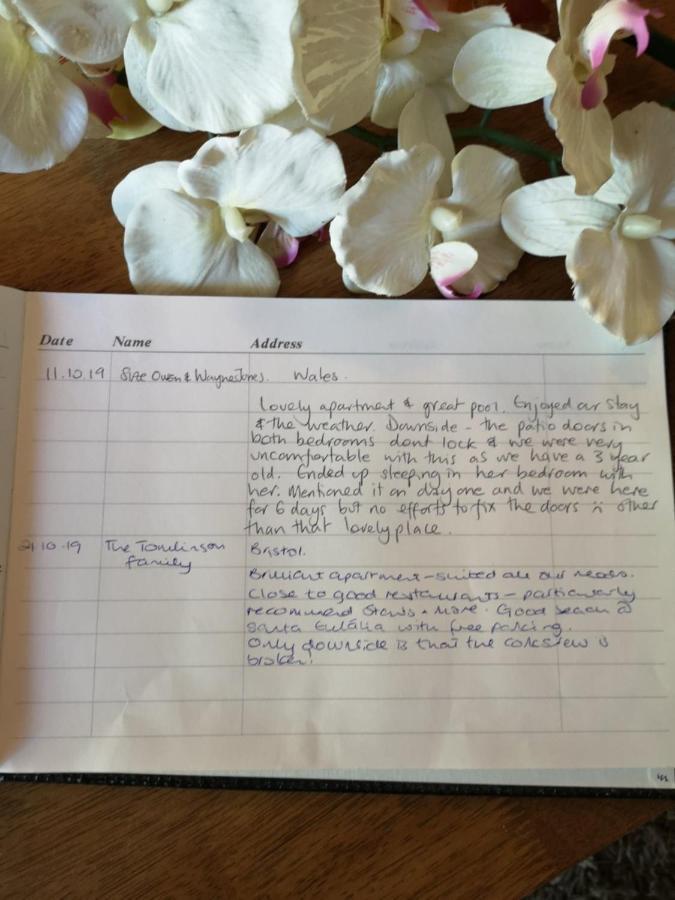 Date Name Address
11.10.19 Sue Owen & Wayne Jones. Wales.
Lovely apartment & great pool. Enjoyed our stay
& the weather. Downside - the patio doors in
both bedrooms dont lock & we were very
uncomfortable with this as we have a 3 year
old. Ended up sleeping in her bedroom with
her. Mentioned it on day one and we were here
for 6 days but no efforts to fix the doors :( other
than that lovely place.
21.10.19 The Tomlinson Bristol.
family
Brilliant apartment - suited all our needs.
Close to good restaurants - particularly
recommend Steaks & More. Good beach @
Santa Eulália with free parking.
Only downside is that the corkscrew is
broken!